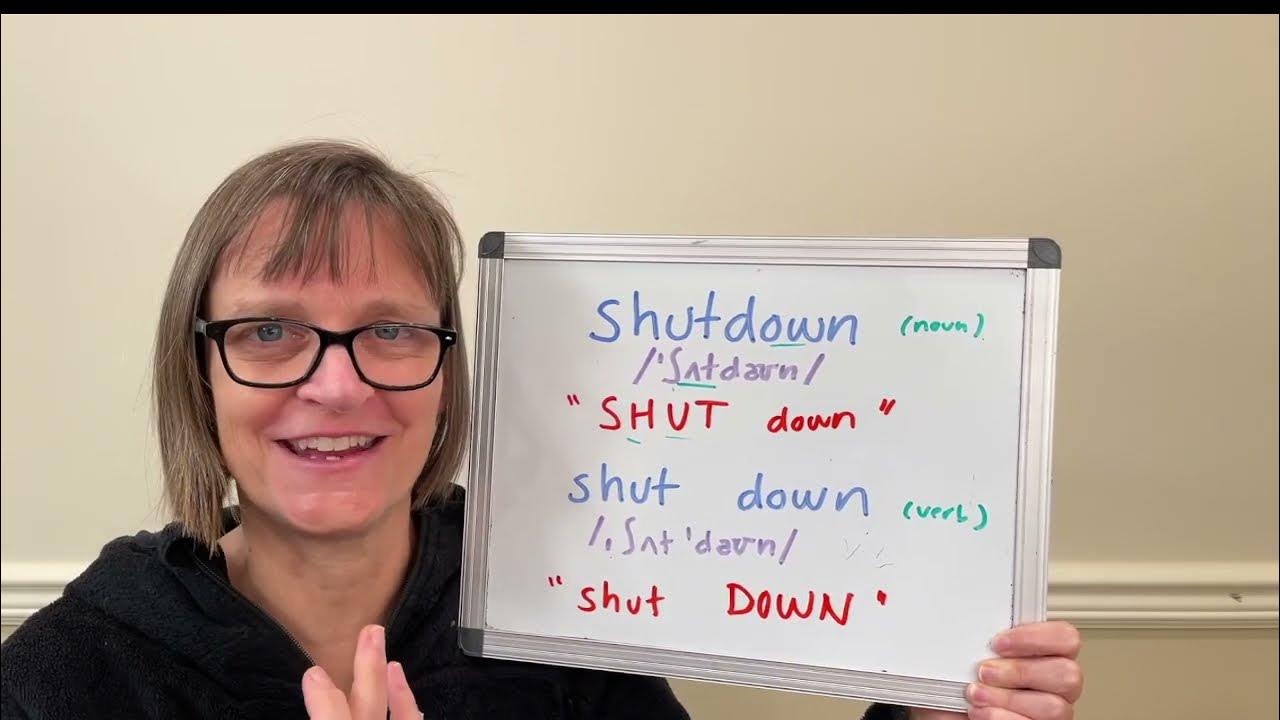 shutdown (noun)
/ˈʃʌtdaʊn/
"SHUT down"
shut down (verb)
/ˌʃʌt ˈdaʊn/
"shut DOWN"